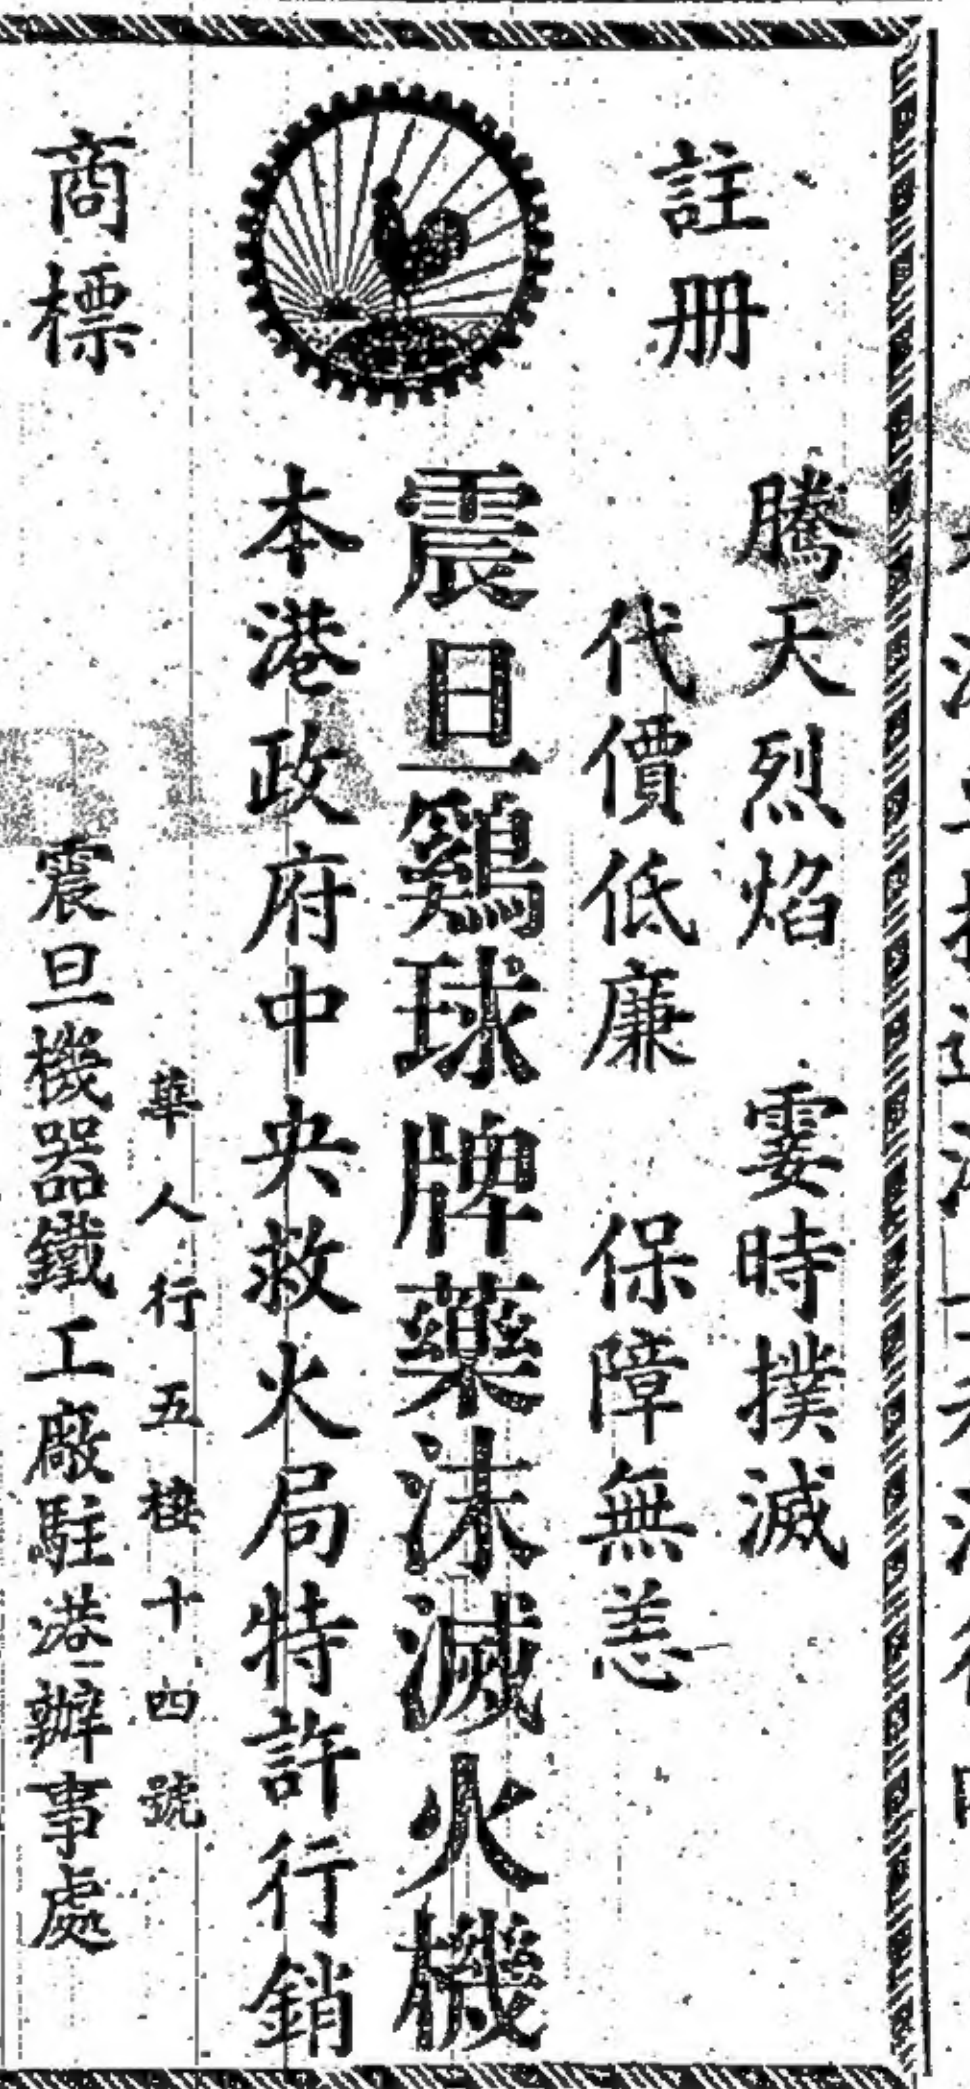 註册
商標
騰天烈焰 霎時撲滅
代價低廉 保障無恙
震旦鷄球牌藥沫滅火機
本港政府中央救火局特許行銷
華人行五樓十四號
震旦機器鐵工廠駐港辦事處